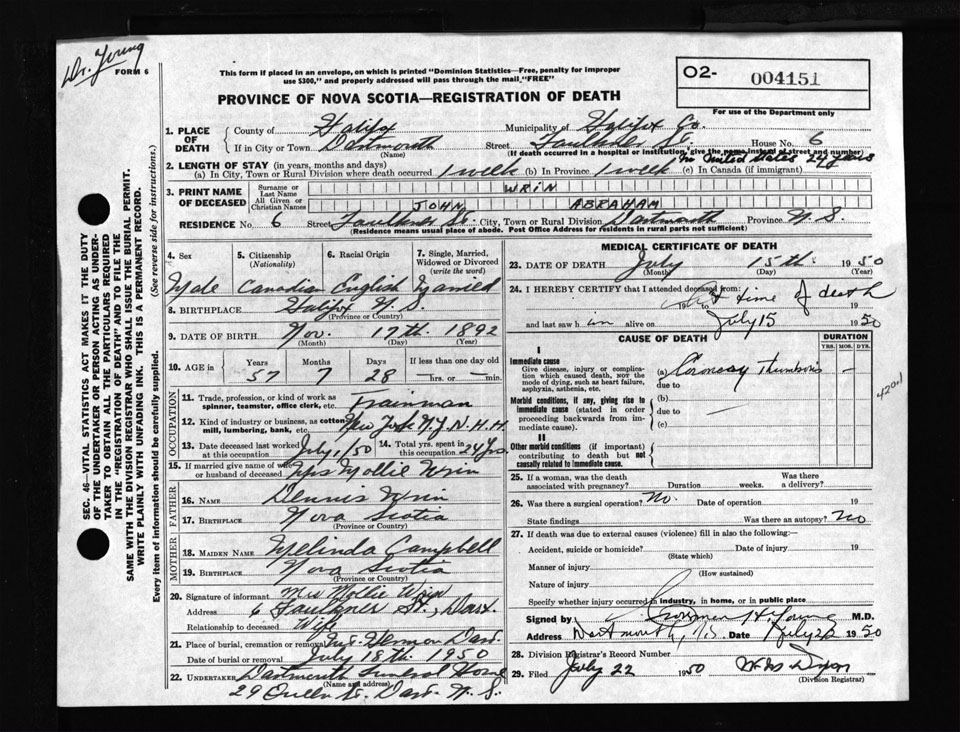 Dr. Young
FORM 6
This form if placed in an envelope, on which is printed "Dominion Statistics—Free, penalty for improper
use $300," and properly addressed will pass through the mail "FREE"
PROVINCE OF NOVA SCOTIA—REGISTRATION OF DEATH
02- 004151
For use of the Department only
1. PLACE OF DEATH County of Halifax Municipality of Halifax Co.
If in City or Town Dartmouth Street Faulkner St. House No. 6
(Name) (If death occurred in a hospital or institution, give the name instead of street and number)
In United States 24 years
2. LENGTH OF STAY (in years, months and days)
(a) In City, Town or Rural Division where death occurred 1 week (b) In Province 1 week (c) In Canada (if immigrant)
3. PRINT NAME OF DECEASED Surname or Last Name WRIN
All Given or Christian Names JOHN ABRAHAM
RESIDENCE No. 6 Street Faulkner St. City, Town or Rural Division Dartmouth Province N.S.
(Residence means usual place of abode. Post Office Address for residents in rural parts not sufficient)
4. Sex 5. Citizenship (Nationality) 6. Racial Origin 7. Single, Married, Widowed or Divorced (write the word)
Male Canadian English Married
8. BIRTHPLACE Halifax N.S.
(Province or Country)
9. DATE OF BIRTH Nov. 17th 1892
(Month) (Day) (Year)
10. AGE in Years Months Days If less than one day old
57 7 28 hrs. or min.
OCCUPATION
11. Trade, profession, or kind of work as spinner, teamster, office clerk, etc. Trainman
12. Kind of industry or business, as cotton mill, lumbering, bank, etc. New York N.Y.N.H.H
13. Date deceased last worked at this occupation July 1/50 14. Total yrs. spent in this occupation 24 yrs.
15. If married give name of wife or husband of deceased Mrs Mollie Wrin
FATHER
16. NAME Dennis Wrin
17. BIRTHPLACE Nova Scotia
(Province or Country)
MOTHER
18. MAIDEN NAME Melinda Campbell
19. BIRTHPLACE Nova Scotia
(Province or Country)
20. Signature of informant Mrs Mollie Wrin
Address 6 Faulkner St., Dart.
Relationship to deceased Wife
21. Place of burial, cremation or removal Mt. Hermon Dart.
Date of burial or removal July 18th 1950
22. UNDERTAKER Dartmouth Funeral Home
(Name and address)
29 Queen St. Dart. N.S.
MEDICAL CERTIFICATE OF DEATH
23. DATE OF DEATH July 15th 1950
(Month) (Day) (Year)
24. I HEREBY CERTIFY that I attended deceased from:
19 to at time of death
and last saw him alive on July 15 1950
CAUSE OF DEATH DURATION
YRS. MOS. DYS.
I
Immediate cause
Give disease, injury or complication which caused death, not the mode of dying, such as heart failure, asphyxia, asthenia, etc.
(a) Coronary Thumbosis —
due to
Morbid conditions, if any, giving rise to immediate cause (stated in order proceeding backwards from immediate cause).
(b)
due to —
(c)
4201
II
Other morbid conditions (if important) contributing to death but not causally related to immediate cause.
25. If a woman, was the death associated with pregnancy? Duration weeks. Was there a delivery?
26. Was there a surgical operation? No. Date of operation 19
State findings Was there an autopsy? No
27. If death was due to external causes (violence) fill in also the following:—
Accident, suicide or homicide? Date of injury 19
(State which)
Manner of injury
(How sustained)
Nature of injury
Specify whether injury occurred in industry, in home, or in public place
Signed by H. Young M.D.
Address Dartmouth, N.S. Date July 22 1950
28. Division Registrar's Record Number
29. Filed July 22 1950 Dyon
(Division Registrar)
SEC. 46—VITAL STATISTICS ACT MAKES IT THE DUTY
OF THE UNDERTAKER OR PERSON ACTING AS UNDERTAKER
TO OBTAIN ALL THE PARTICULARS REQUIRED
IN THE "REGISTRATION OF DEATH" AND TO FILE THE
SAME WITH THE DIVISION REGISTRAR WHO SHALL ISSUE THE BURIAL PERMIT.
WRITE PLAINLY WITH UNFADING INK. THIS IS A PERMANENT RECORD.
Every item of information should be carefully supplied. (See reverse side for instructions.)